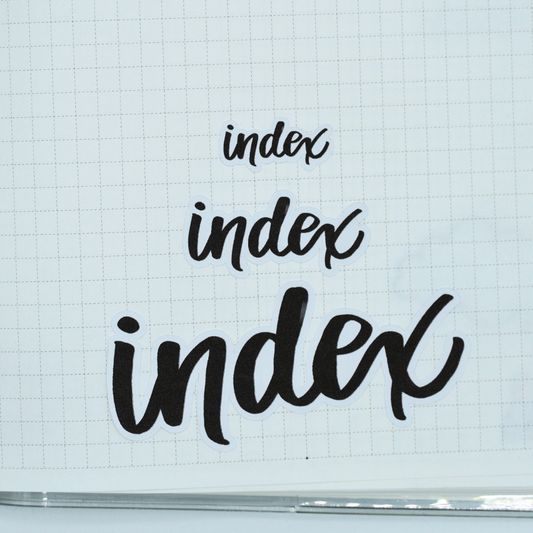 index
index
index